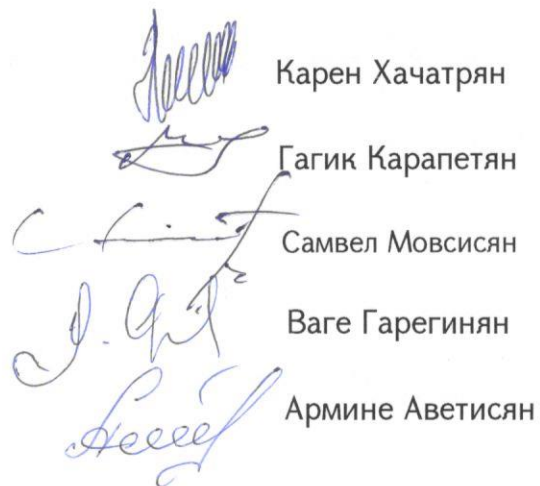 Карен Хачатрян
Гагик Карапетян
Самвел Мовсисян
Ваге Гарегинян
Армине Аветисян